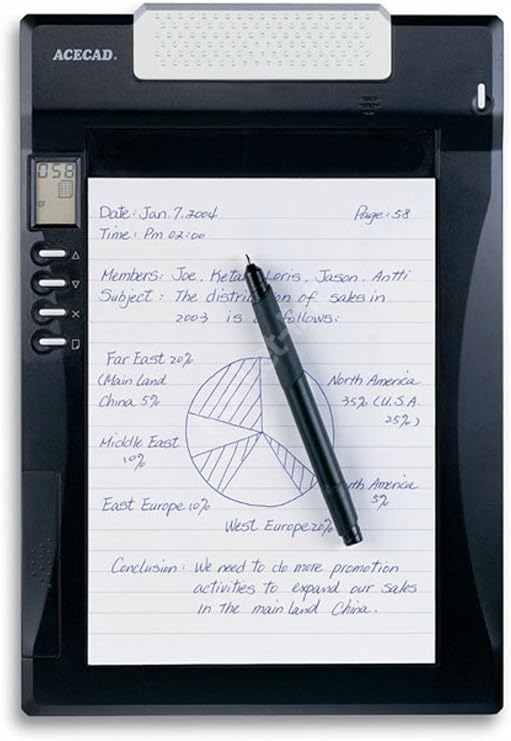 ACECAD.
058
Date: Jan. 7. 2004 Page: 58
Time: Pm 02:00
Members: Joe, Loris, Jason, Antti
Subject: The of sales in
2003 is follows:
Far East 20%
(Main Land
China 5%
North America
35% (U.S.A.
25%)
Middle East
10%
America
5%
East Europe 10%
West Europe 20%
Conclusion: We need to do more promotion
activities to expand our sales
in the main land China.